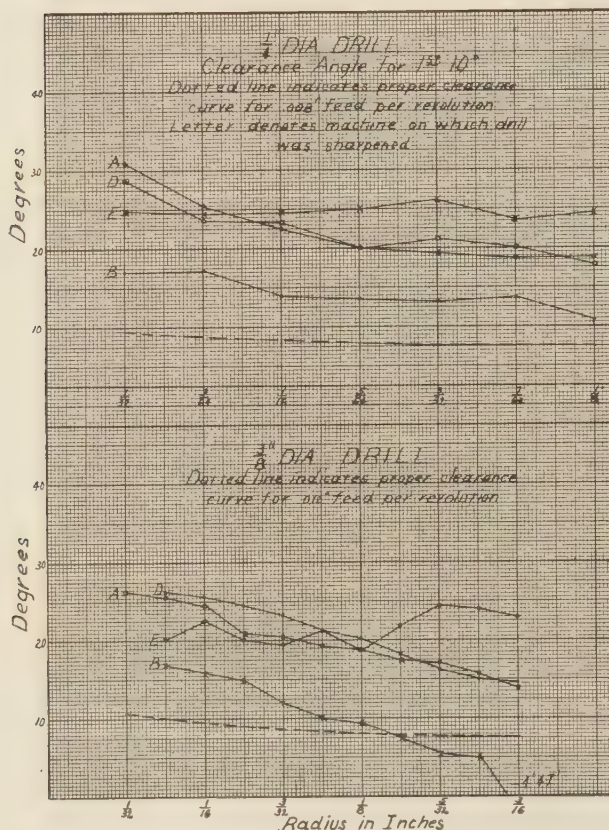 1/4" DIA DRILL
Clearance Angle for
Dotted line indicates proper clearance
curve for .008" feed per revolution
Letter denotes machine on which drill
was sharpened
Degrees
40
30
20
10
A
D
E
B
3/8" DIA. DRILL
Dotted line indicates proper clearance
curve for .010" feed per revolution
Degrees
40
30
20
10
00
A
D
E
B
-4°47'
1/32 1/16 3/32 1/8 5/32 3/16
Radius in Inches